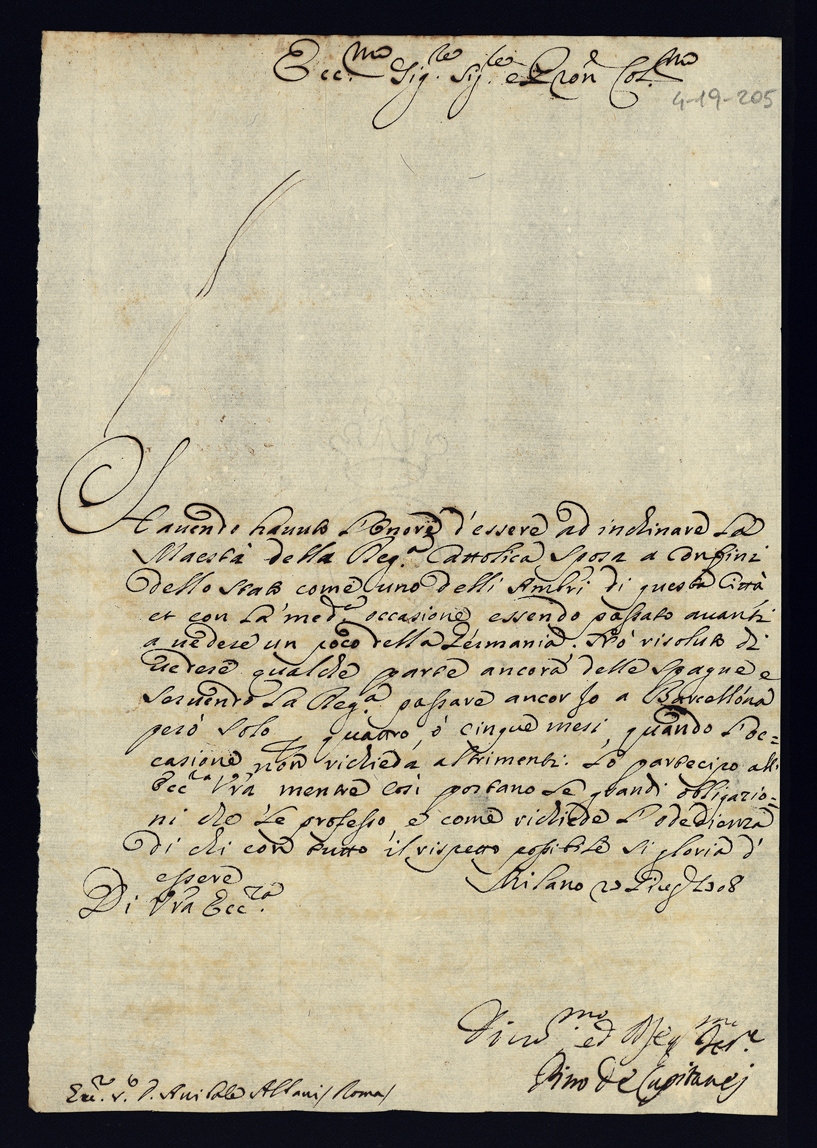 Ecc.mo Sig.re Sig.re e Pron Col.mo
4-19-205
Havendo havuto l'onore d'essere ad inchinare la
Maestà della Reg.a Cattolica Sposa a confini
dello Stato come uno delli Ambri di questa Città
et con la med.a occasione essendo passato avanti
a vedere un poco della Germania. Hò risoluto di
vedere qualche parte ancora delle Spagne e
servendo la Reg.a passare ancor Io a Barcellona
però solo quattro, ò cinque mesi, quando l'oc=
casione non richieda altrimenti. Lo partecipo all'
Ecc.za Vra mentre così portano le grandi obligazio=
ni che le professo e come richiede l'obedienza
di chi con tutto il rispetto possibile si gloria d'
essere
Milano Giug. 1708
Di Vra Ecc.za
mo ed
Pino De Capitanej
Ecc.mo S. D. Anibale Albani / Roma /